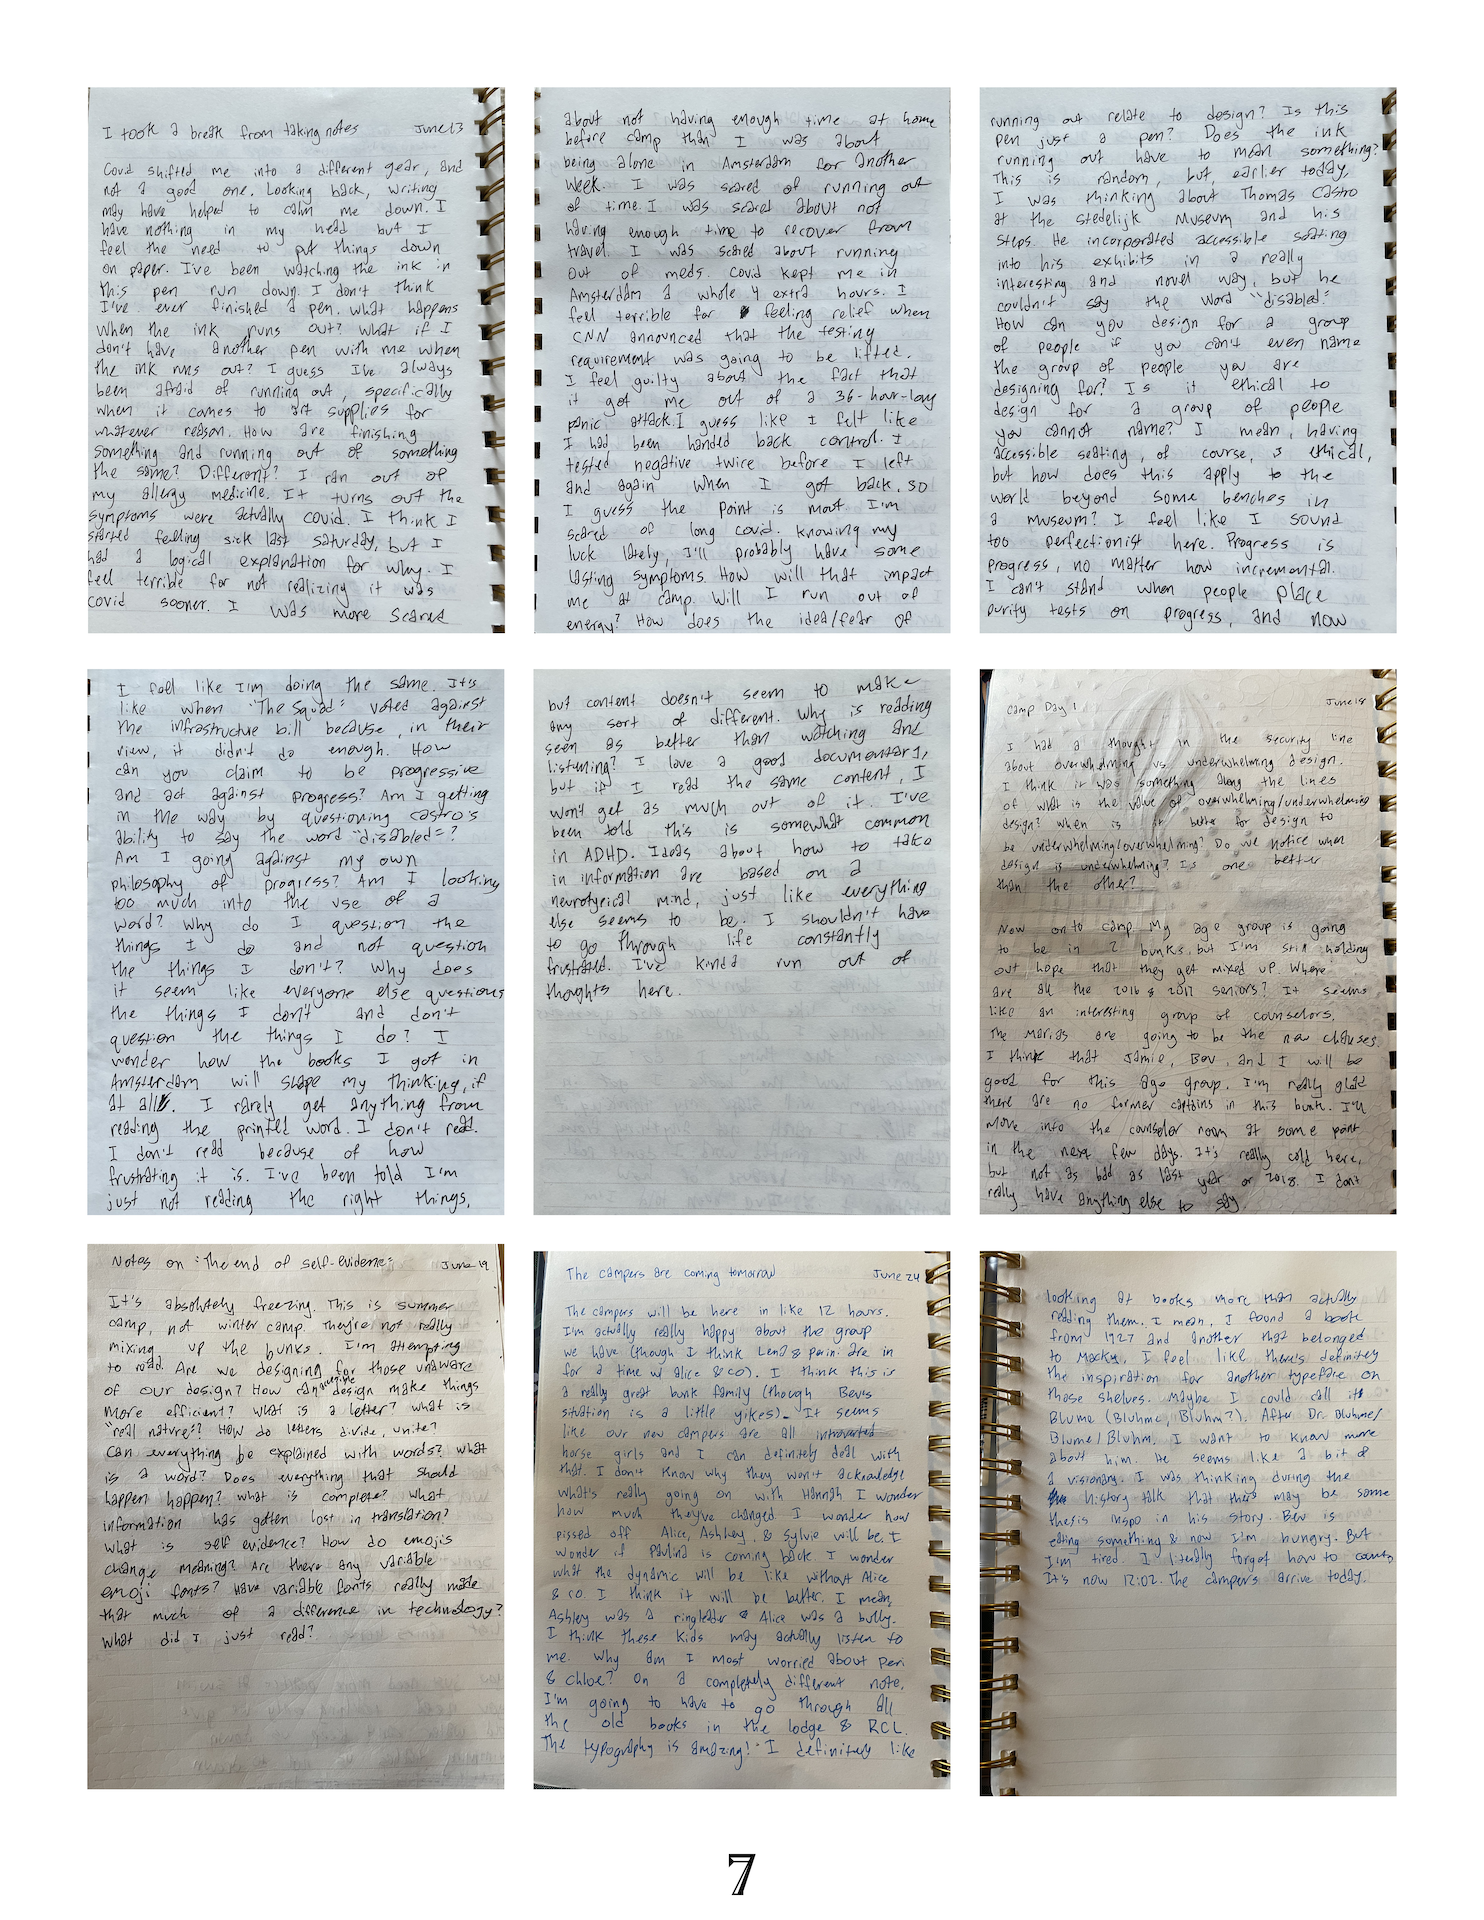 I took a break from taking notes June 13
Covid shifted me into a different gear, and
not a good one. Looking back, writing
may have helped to calm me down. I
have nothing in my head but I
feel the need to put things down
on paper. I've been watching the ink in
this pen run down. I don't think
I've ever finished a pen. What happens
when the ink runs out? What if I
don't have another pen with me when
the ink runs out? I guess I've always
been afraid of running out, specifically
when it comes to art supplies for
whatever reason. How are finishing
something and running out of something
the same? Different? I ran out of
my allergy medicine. It turns out the
symptoms were actually covid. I think I
started feeling sick last saturday, but I
had a logical explanation for why. I
feel terrible for not realizing it was
covid sooner. I was more scared
about not having enough time at home
before camp than I was about
being alone in Amsterdam for another
week. I was scared of running out
of time. I was scared about not
having enough time to recover from
travel. I was scared about running
out of meds. Covid kept me in
Amsterdam a whole 4 extra hours. I
feel terrible for feeling relief when
CNN announced that the testing
requirement was going to be lifted.
I feel guilty about the fact that
it got me out of a 36-hour-long
panic attack. I guess like I felt like
I had been handed back control. I
tested negative twice before I left
and again when I got back, so
I guess the point is moot. I'm
scared of long covid. Knowing my
luck lately, I'll probably have some
lasting symptoms. How will that impact
me at camp. Will I run out of
energy? How does the idea/fear of
running out relate to design? Is this
pen just a pen? Does the ink
running out have to mean something?
This is random, but, earlier today,
I was thinking about Thomas Castro
at the Stedelijk Museum and his
steps. He incorporated accessible seating
into his exhibits in a really
interesting and novel way, but he
couldn't say the word "disabled"
How can you design for a group
of people if you can't even name
the group of people you are
designing for? Is it ethical to
design for a group of people
you cannot name? I mean, having
accessible seating, of course, is ethical,
but how does this apply to the
world beyond some benches in
a museum? I feel like I sound
too perfectionist here. Progress is
progress, no matter how incremental.
I can't stand when people place
purity tests on progress, and now
I feel like I'm doing the same. It's
like when "The Squad" voted against
the infrastructure bill because, in their
view, it didn't do enough. How
can you claim to be progressive
and act against progress? Am I getting
in the way by questioning Castro's
ability to say the word "disabled"?
Am I going against my own
philosophy of progress? Am I looking
too much into the use of a
word? Why do I question the
things I do and not question
the things I don't? Why does
it seem like everyone else questions
the things I don't and don't
question the things I do? I
wonder how the books I got in
Amsterdam will shape my thinking, if
at all. I rarely get anything from
reading the printed word. I don't read.
I don't read because of how
frustrating it is. I've been told I'm
just not reading the right things,
but content doesn't seem to make
any sort of different. Why is reading
seen as better than watching and
listening? I love a good documentary,
but if I read the same content, I
won't get as much out of it. I've
been told this is somewhat common
in ADHD. Ideas about how to take
in information are based on a
neurotypical mind, just like everything
else seems to be. I shouldn't have
to go through life constantly
frustrated. I've kinda run out of
thoughts here.
Camp Day 1 June 18
I had a thought in the security line
about overwhelming vs. underwhelming design.
I think it was something along the lines
of what is the value of overwhelming/underwhelming
design? When is it better for design to
be underwhelming/overwhelming? Do we notice when
design is underwhelming? Is one better
than the other?
Now onto camp. My age group is going
to be in 2 bunks, but I'm still holding
out hope that they get mixed up. Where
are all the 2016 & 2017 seniors? It seems
like an interesting group of counselors.
The Marias are going to be the new
I think that Jamie, Bev, and I will be
good for this age group. I'm really glad
there are no former captains in this bunk. I'll
move into the counselor room at some point
in the next few days. It's really cold here,
but not as bad as last year or 2018. I don't
really have anything else to say.
Notes on "The end of self-evidence" June 19
It's absolutely freezing. This is summer
camp, not winter camp. They're not really
mixing up the bunks. I'm attempting
to read. Are we designing for those unaware
of our design? How can design make things
more efficient? What is a letter? What is
"real nature"? How do letters divide, unite?
Can everything be explained with words? What
is a word? Does everything that should
happen happen? What is complete? What
information has gotten lost in translation?
What is self evidence? How do emojis
change meaning? Are there any variable
emoji fonts? Have variable fonts really made
that much of a difference in technology?
What did I just read?
The campers are coming tomorrow June 24
The campers will be here in like 12 hours.
I'm actually really happy about the group
we have (though I think Lena & Perin are in
for a time w/ Alice & co). I think this is
a really great bunk family (though Bev's
situation is a little yikes). It seems
like our new campers are all introverted
horse girls and I can definitely deal with
that. I don't know why they won't acknowledge
what's really going on with Hannah. I wonder
how much they've changed. I wonder how
pissed off Alice, Ashley, & Sylvie will be. I
wonder if Paulina is coming back. I wonder
what the dynamic will be like without Alice
& co. I think it will be better. I mean,
Ashley was a ringleader & Alice was a bully.
I think these kids may actually listen to
me. Why am I most worried about Peri
& Chloe? On a completely different note,
I'm going to have to go through all
the old books in the lodge & RCL.
The typography is amazing! I definitely like
looking at books more than actually
reading them. I mean, I found a book
from 1927 and another that belonged
to Macky. I feel like there's definitely
the inspiration for another typeface on
those shelves. Maybe I could call it
Blume (Bluhme, Bluhm?). After Dr. Bluhme/
Blume/Bluhm. I want to know more
about him. He seems like a bit of
a visionary. I was thinking during the
history talk that there may be some
thesis inspo in his story. Bev is
eating something & now I'm hungry. But
I'm tired. I literally forgot how to count.
It's now 12:02. The campers arrive today.
7